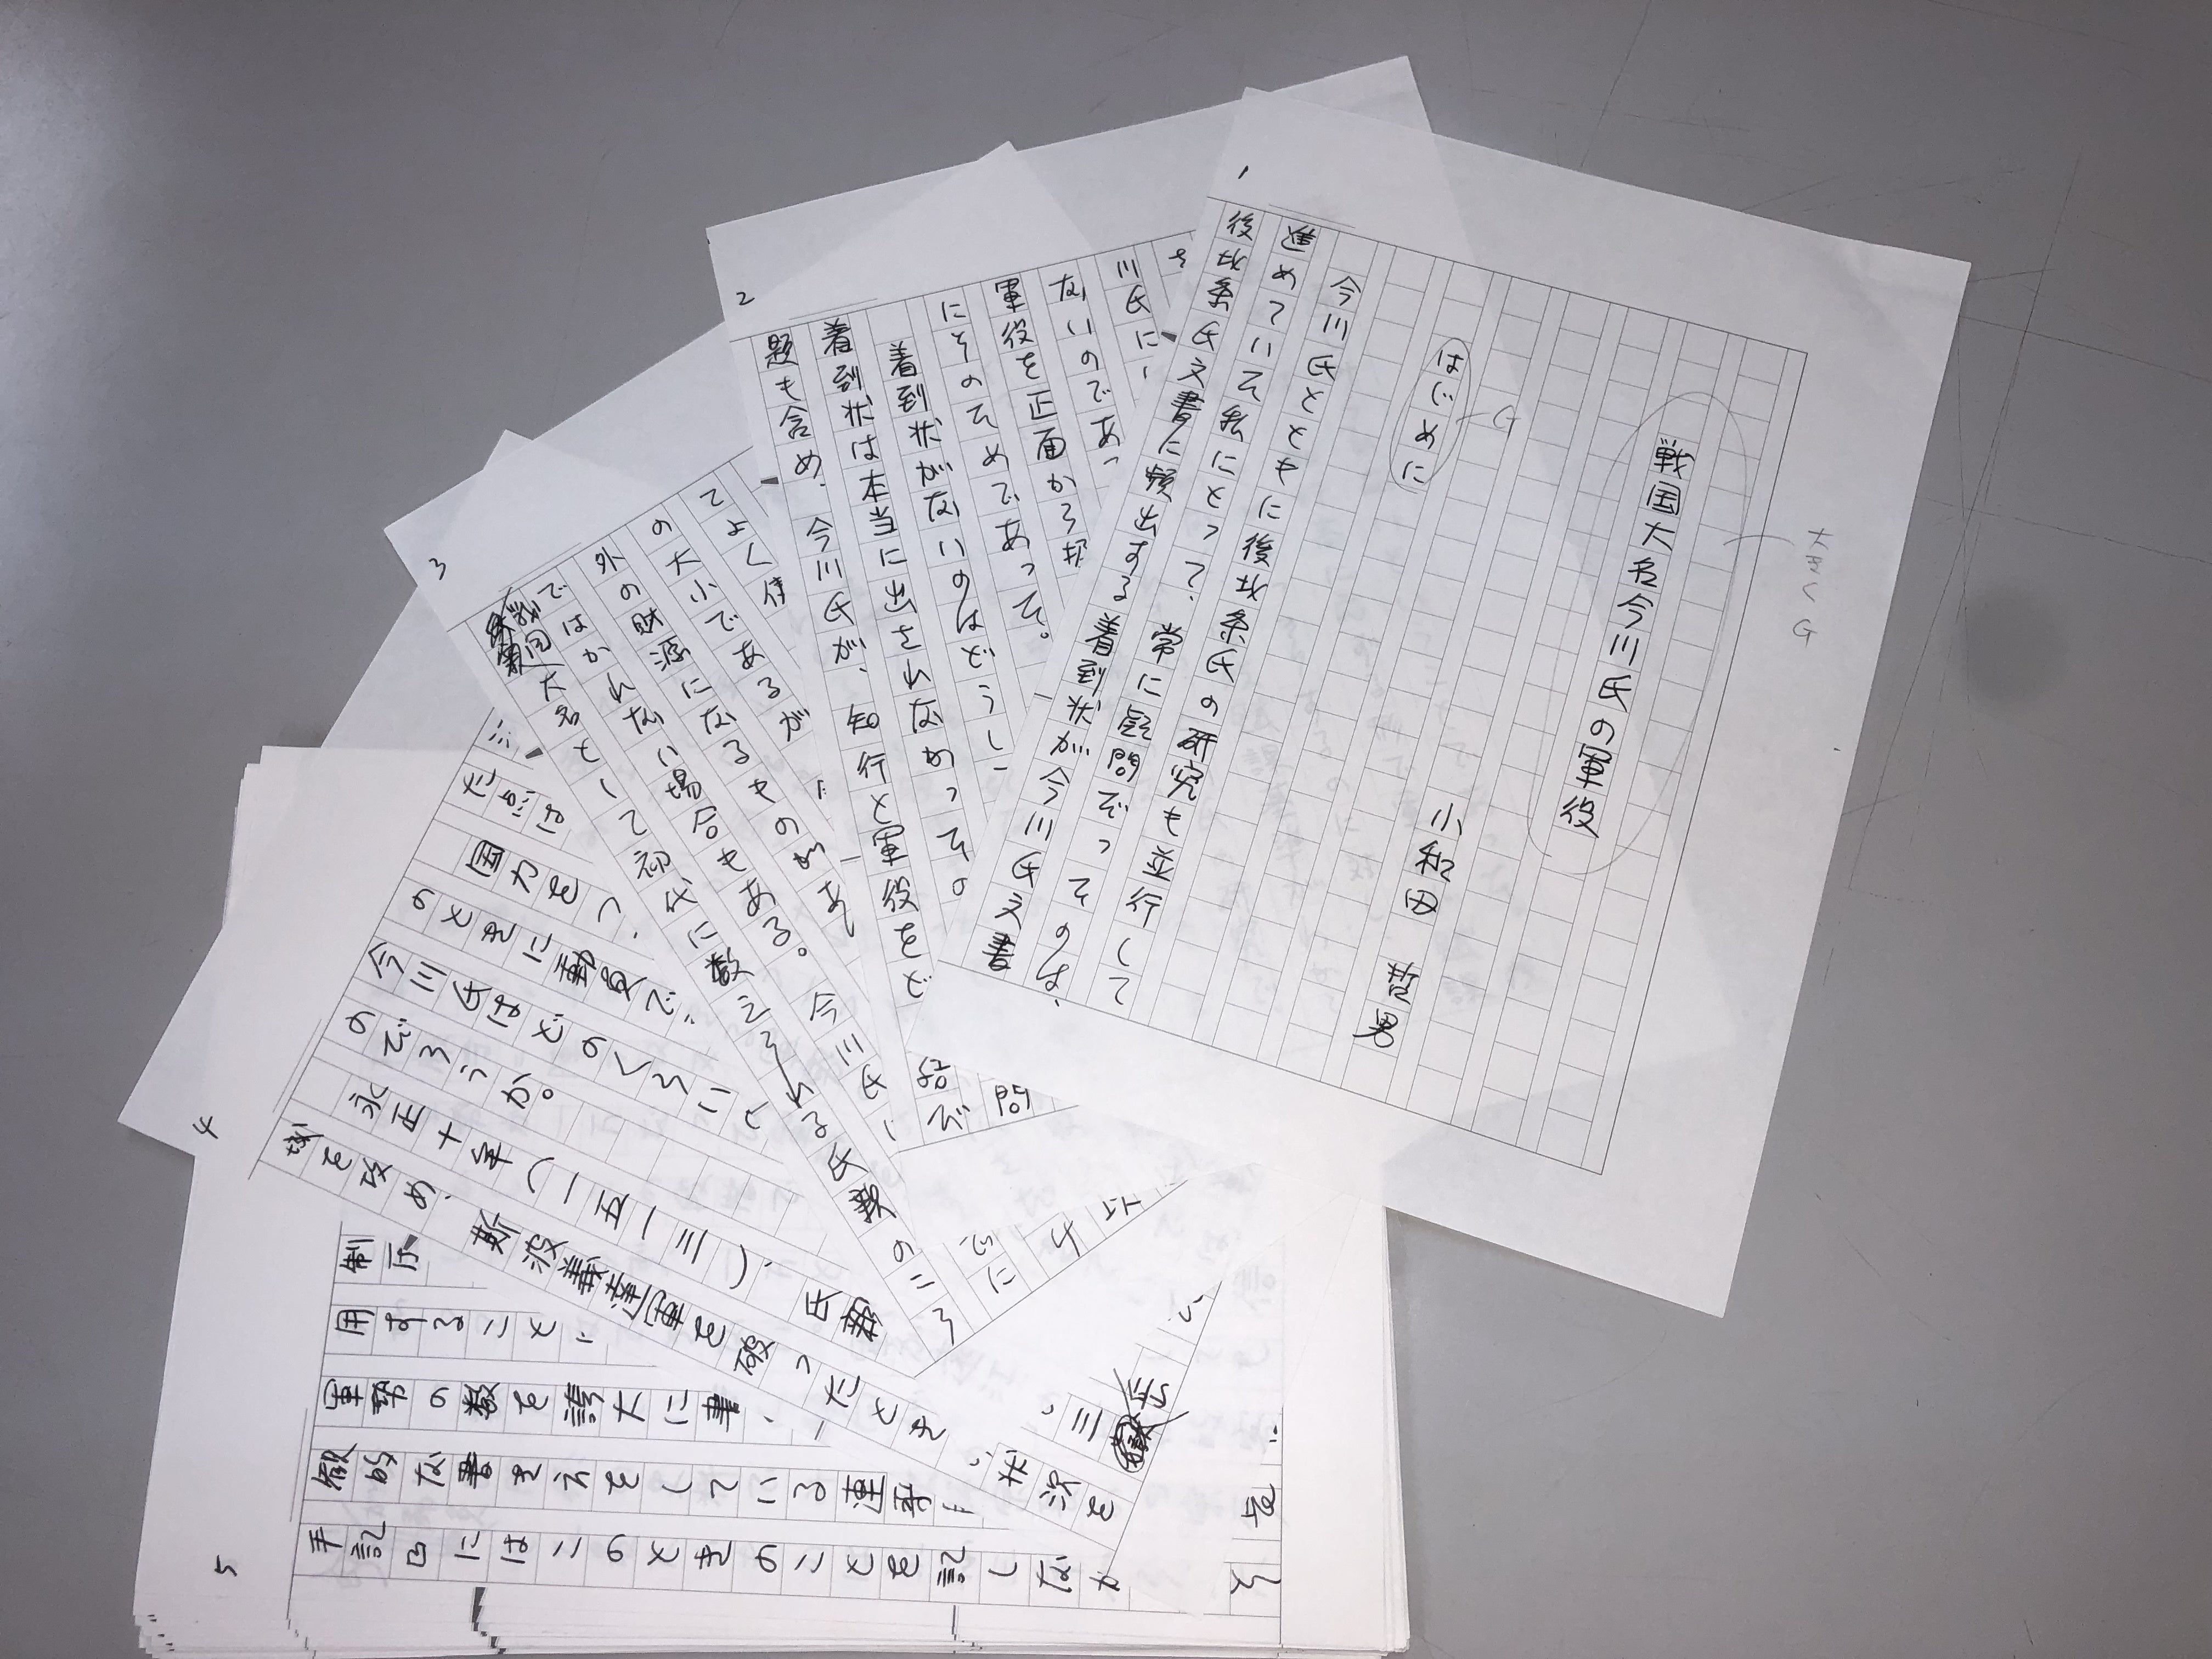 1
大きくG
戦国大名今川氏の軍役
小和田 哲男
はじめに
G
今川氏とともに後北条氏の研究も並行して
進めていた私にとって、常に疑問だったのは、
後北条氏文書に頻出する着到状が今川氏文書
2
川氏に
ないのであっ
軍役を正面から
にそのためであった。
着到状がないのはどうし
着到状は本当に出されなかったの
問
題も含め、今川氏が、知行と軍役をど
3
てよく
の大小であるが
外の財源になるものがあ
ではかれない場合もある。今川氏
戦国大名として初代に数えられる氏親のころ
4
た点は
国力を
のときに動員で
今川氏はどのくらい
のだろうか。
永正十年(一五一三)、氏親
を攻め、斯波義達軍を破ったとき
状況を
5
用すること
軍勢の数を誇大に書
観的な書き方をしている連歌
手記』にはこのときのことを記しなが